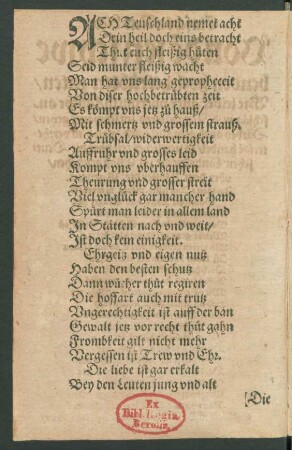 ACH Teuschland nemet acht
Dein heil doch eins betracht
Thůt euch fleißig hüten
Seid munter fleißig wacht
Man hat vns lang gepropheceit
Von diser hochbetrübten zeit
Es kömpt vns jetz zů hauß/
Mit schmertz vnd grossem strauß.
Trübsal/widerwertigkeit
Auffruhr vnd grosses leid
Kompt vns vberhauffen
Theurung vnd grosser streit
Viel vnglück gar mancher hand
Spürt man leider in allem land
In Stätten nach vnd weit/
Ist doch kein einigkeit.
Ehrgeitz vnd eigen nutz
Haben den besten schutz
Dann wůcher thůt regiren
Die hoffart auch mit trutz
Vngerechtigkeit ist auff der ban
Gewalt jetz vor recht thůt gahn
Frombkeit gilt nicht mehr
Vergessen ist Trew vnd Ehr.
Die liebe ist gar erkalt
Bey den Leuten jung vnd alt
Die
Ex
Bibl. Regia
Berolin.